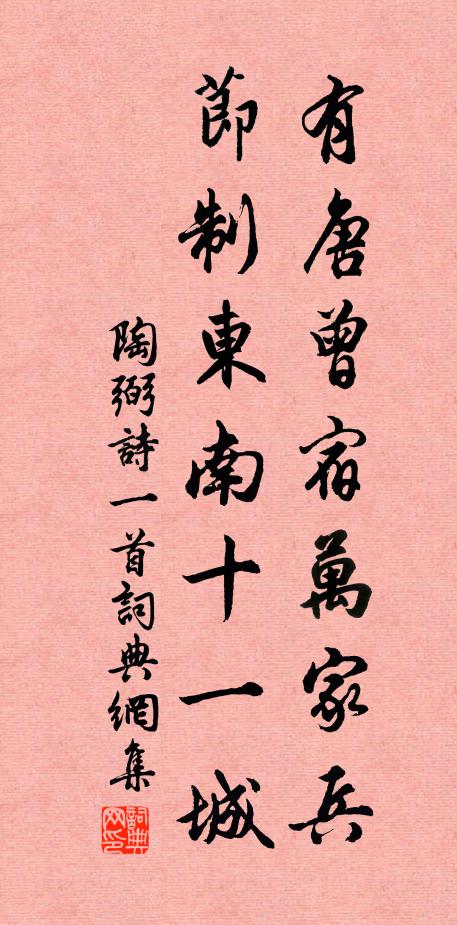 有唐曾宿萬家兵
節制東南十一城
陶弼詩一首詞典網集
詞典網印